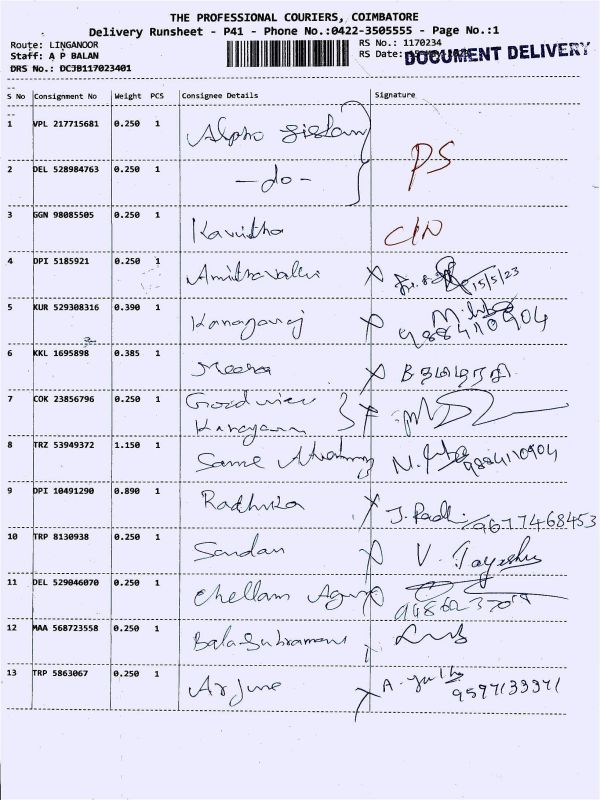 THE PROFESSIONAL COURIERS, COIMBATORE
Delivery Runsheet - P41 - Phone No.:0422-3505555 - Page No.:1
Route: LINGANOOR
Staff: A P BALAN
DRS No.: DCJB117023401
RS No.: 1170234
RS Date:
DOCUMENT DELIVERY
S No Consignment No Weight PCS Consignee Details Signature
1 VPL 217715681 0.250 1 Alpho
2 DEL 528984763 0.250 1 -do- PS
3 GGN 98085505 0.250 1 Kavitha
4 DPI 5185921 0.250 1 15/5/23
5 KUR 529308316 0.390 1 Kanagaraj 9884110904
6 KKL 1695898 0.385 1 Meera
7 COK 23856796 0.250 1 Good view
8 TRZ 53949372 1.150 1 Same 9884110904
9 DPI 10491290 0.890 1 Radhika 9677468453
10 TRP 8130938 0.250 1 Sandan
11 DEL 529046070 0.250 1 Chellam
12 MAA 568723558 0.250 1
13 TRP 5863067 0.250 1 Arjune